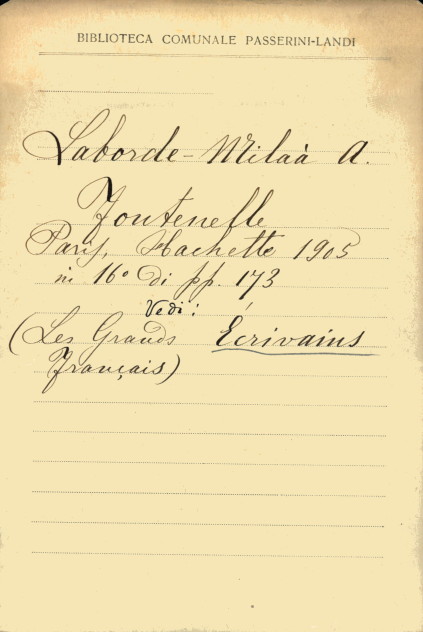 BIBLIOTECA COMUNALE PASSERINI-LANDI
Laborde-Milaà A.
Fontenelle
Paris, Hachette 1905
in 16° di pp. 173
Vedi:
(Les Grands Écrivains
Français)